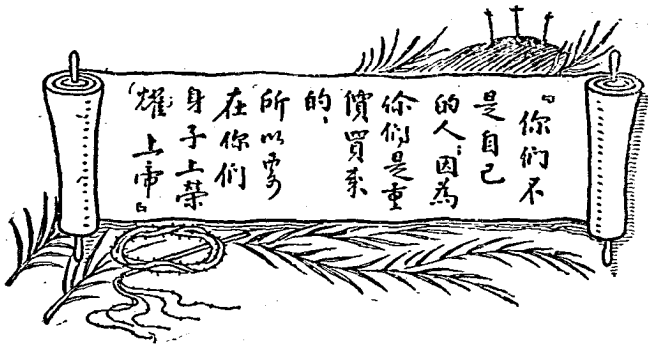 『你们不
是自己
的人;因為
你们是重
價買来
的,
所以要
在你们
身子上荣
耀上帝』